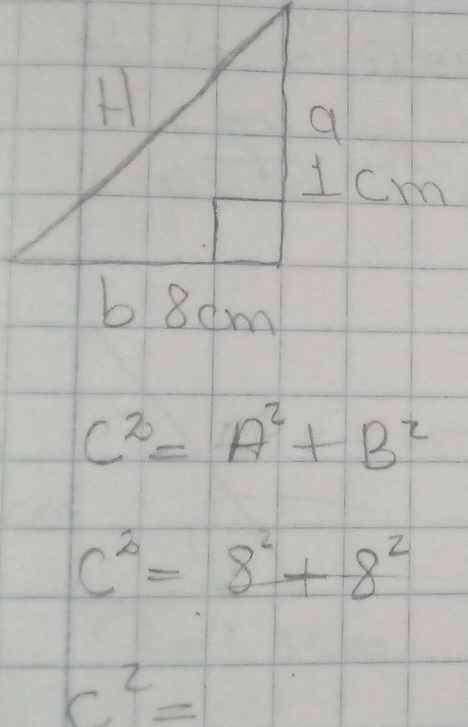 H
a
1 cm
b 8cm
C² = A² + B²
C² = 8² + 8²
C² =